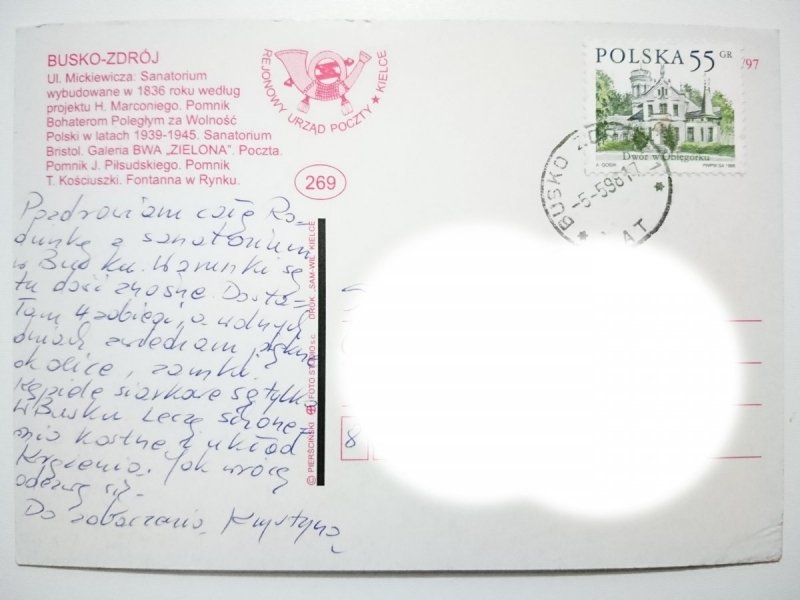 BUSKO-ZDRÓJ
Ul. Mickiewicza: Sanatorium
wybudowane w 1836 roku według
projektu H. Marconiego. Pomnik
Bohaterom Poległym za Wolność
Polski w latach 1939-1945. Sanatorium
Bristol. Galeria BWA „ZIELONA". Poczta.
Pomnik J. Piłsudskiego. Pomnik
T. Kościuszki. Fontanna w Rynku.
REJONOWY URZĄD POCZTY ★ KIELCE
269
POLSKA 55 GR
/97
Dwór w Oblęgorku
BUSKO
-5-598 17
Pozdrawiam całą Ro-
dzinkę z sanatorium
w Busku. Warunki są
tu dość znośne. Dosta-
łam 4 zabiegi, a w wolnych
dniach zwiedzam piękne
okolice, zamki.
Kąpiele siarkowe są tylko
w Busku. Leczą schorze-
nia kostne i układ
krążenia. Jak wrócę
odezwę się.
Do zobaczenia, Krystyna
© PIERŚCIŃSKI FOTO STUDIO s.c. DRUK „SAM-WIL" KIELCE
8